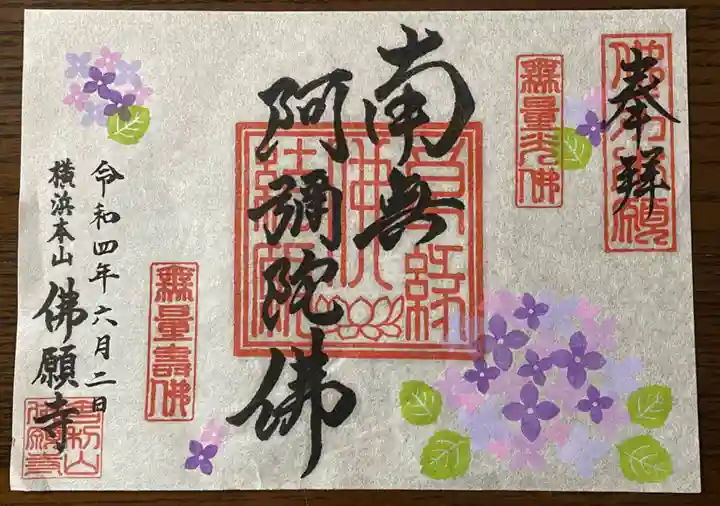 奉拜
無量光佛
南無
阿彌陀佛
無量壽佛
令和四年六月二日
横浜本山
佛願寺